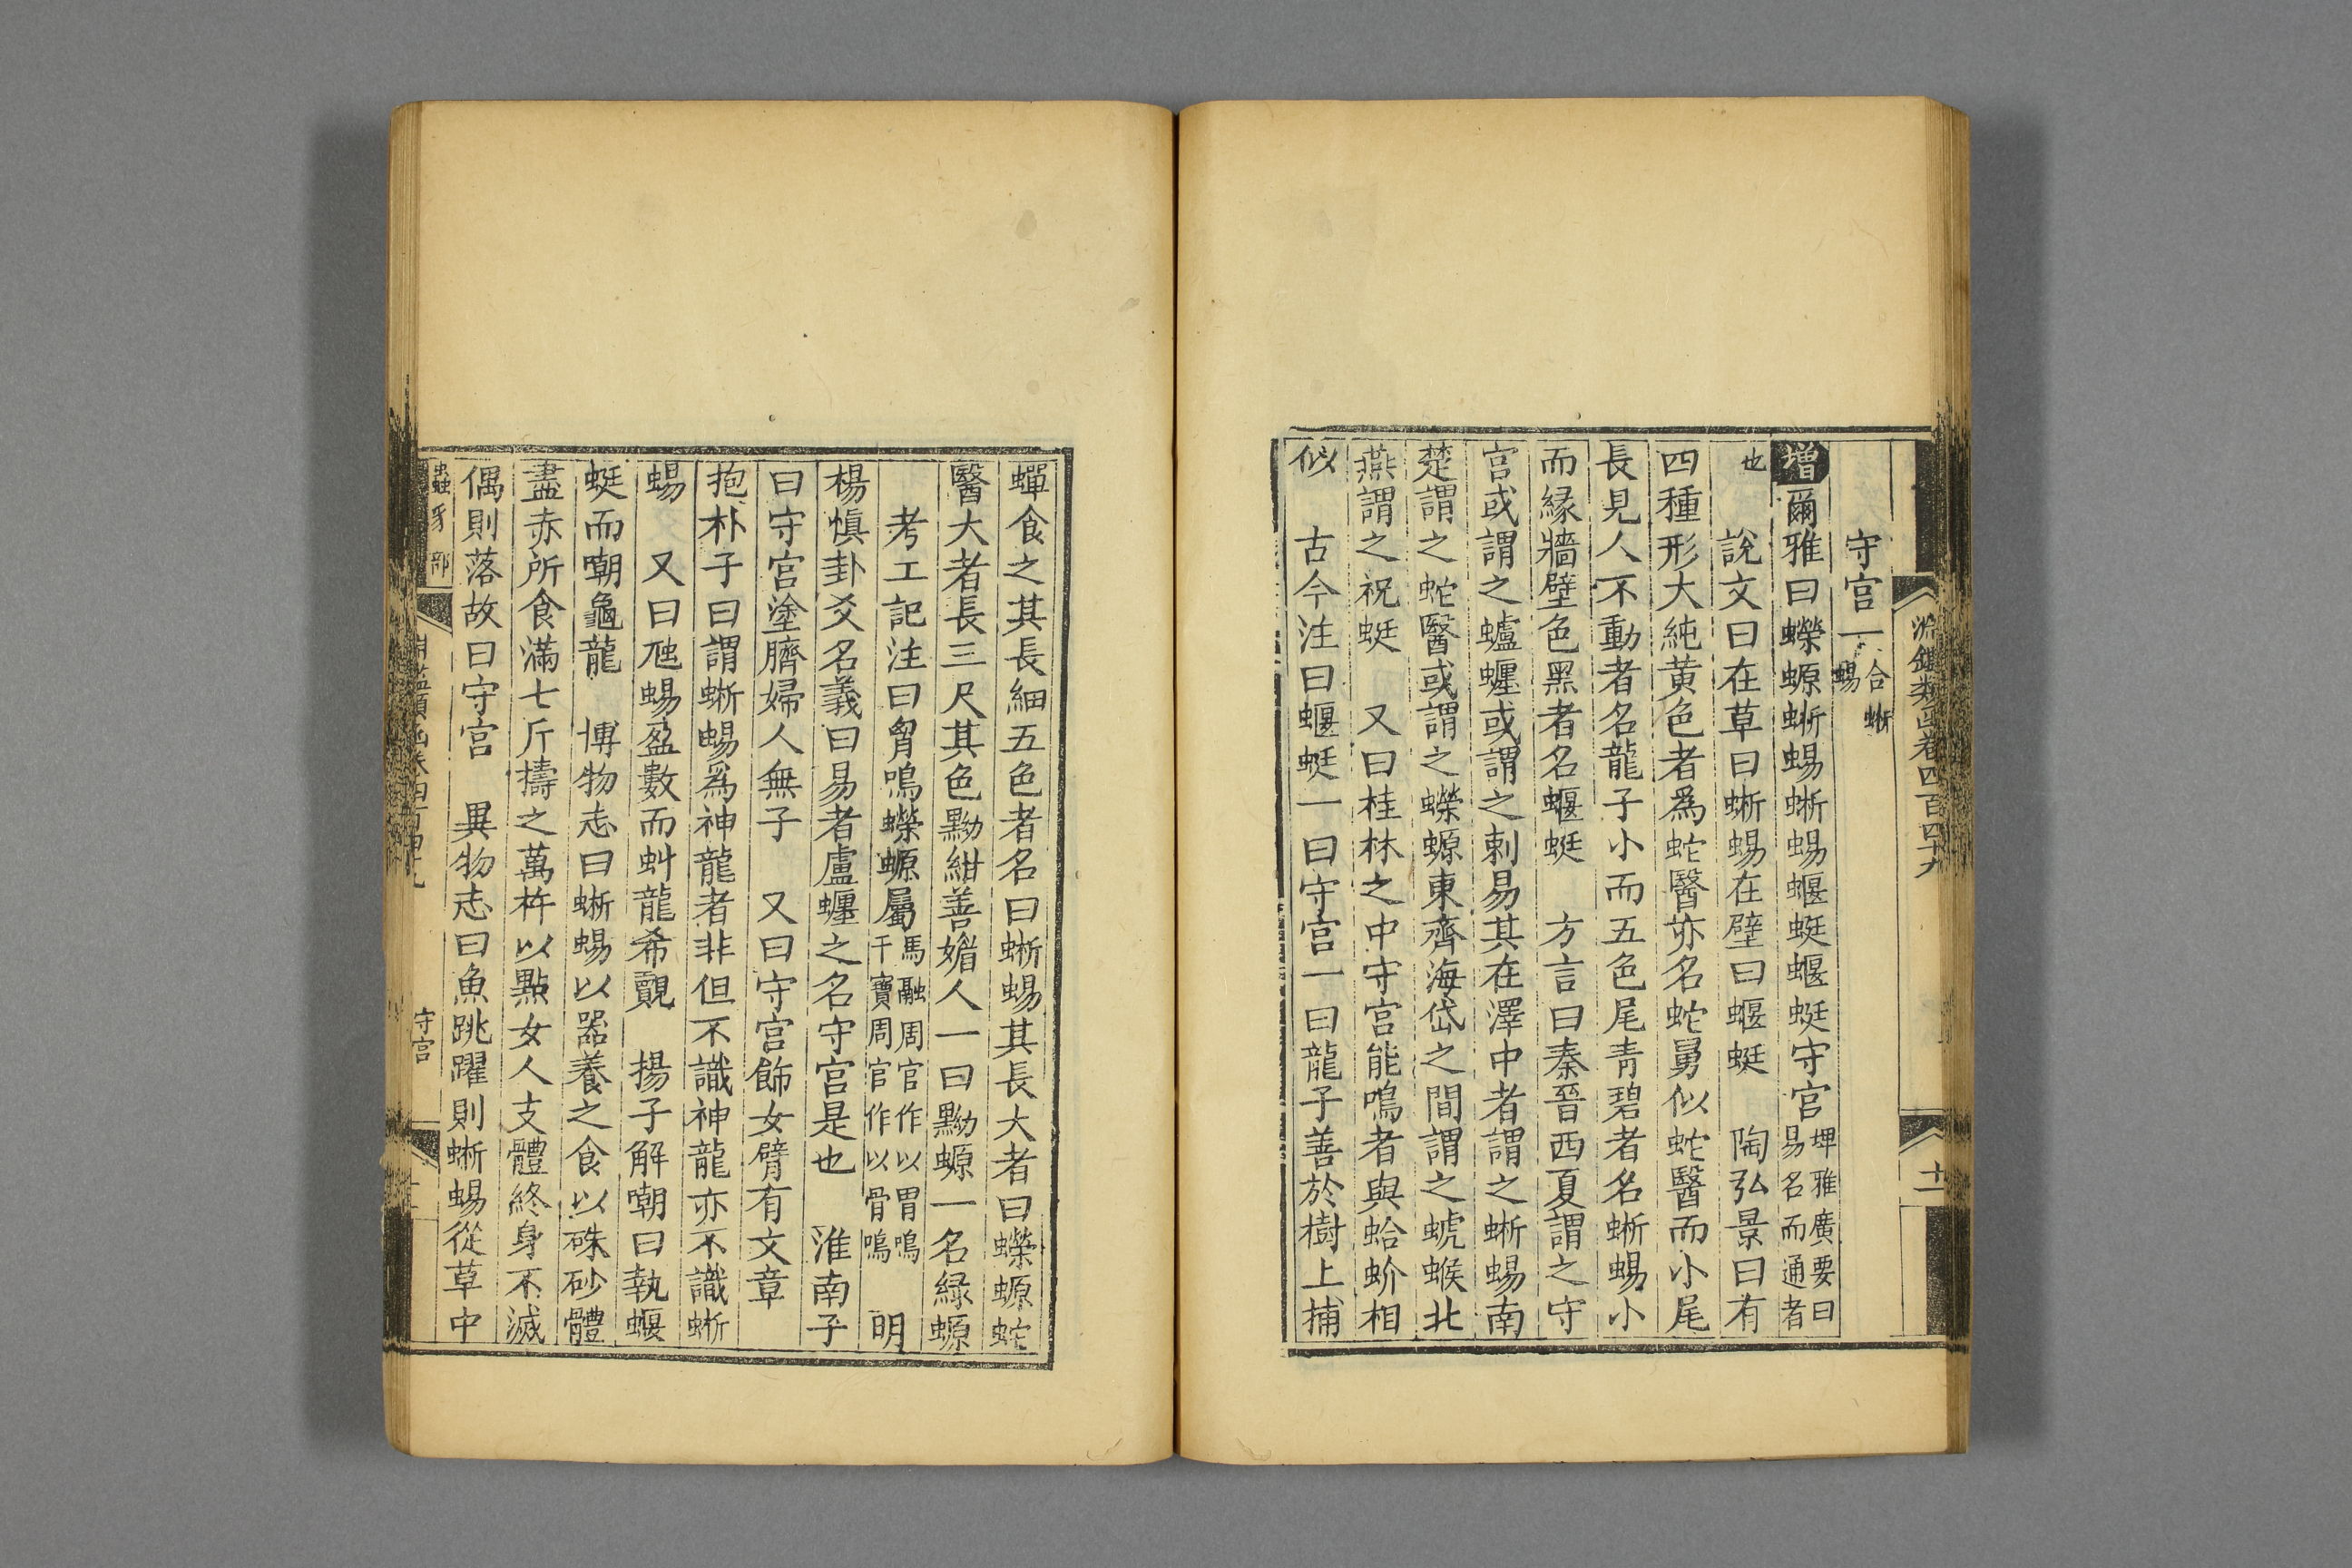 淵鑑類函卷四百四十九
十一
守宮一合蜥蜴
增爾雅曰蠑螈蜥蜴蜥蜴蝘蜓蝘蜓守宮埤雅廣要曰易名而通者
也　說文曰在草曰蜥蜴在壁曰蝘蜓　陶弘景曰有
四種形大純黃色者爲蛇醫亦名蛇舅似蛇醫而小尾
長見人不動者名龍子小而五色尾青碧者名蜥蜴小
而緣牆壁色黑者名蝘蜓　方言曰秦晉西夏謂之守
宮或謂之蠦𧕯或謂之刺易其在澤中者謂之蜥蜴南
楚謂之蛇醫或謂之蠑螈東齊海岱之間謂之螔䗔北
燕謂之祝蜓　又曰桂林之中守宮能鳴者與蛤蚧相
似　古今注曰蝘蜓一曰守宮一曰龍子善於樹上捕
蟬食之其長細五色者名曰蜥蜴其長大者曰蠑螈蛇
醫大者長三尺其色黝紺善媚人一曰黝螈一名緑螈
考工記注曰胷鳴蠑螈屬馬融周官作以胃鳴干寶周官作以骨鳴　明
楊愼卦爻名義曰易者盧𧕯之名守宮是也　淮南子
曰守宮塗臍婦人無子　又曰守宮飾女臂有文章
抱朴子曰謂蜥蜴爲神龍者非但不識神龍亦不識蜥
蜴　又曰虺蜴盈數而虯龍希覿　揚子解嘲曰執蝘
蜓而嘲龜龍　博物志曰蜥蜴以器養之食以硃砂體
盡赤所食滿七斤擣之萬杵以點女人支體終身不滅
偶則落故曰守宮　異物志曰魚跳躍則蜥蜴從草中
蟲豸部
守宮